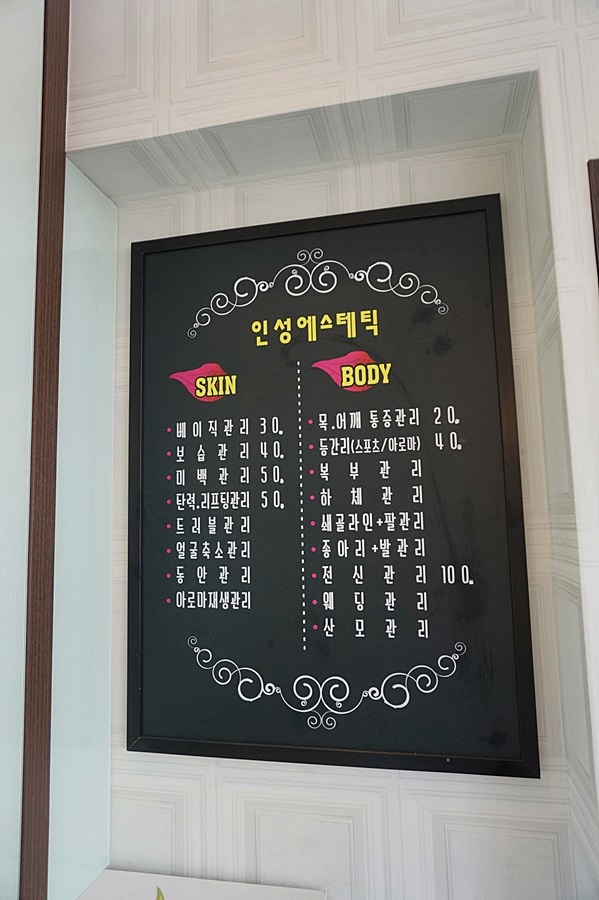 인성에스테틱
SKIN
베이직관리 30.
보습관리 40.
미백관리 50.
탄력.리프팅관리 50.
트러블관리
얼굴축소관리
동안관리
아로마재생관리
BODY
목.어깨 통증관리 20.
등간리(스포츠/아로마) 40.
복부관리
하체관리
쇄골라인+팔관리
종아리+발관리
전신관리 100.
웨딩관리
산모관리